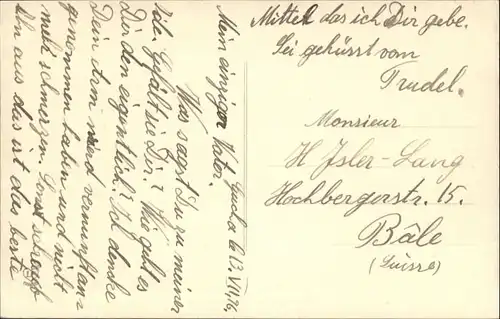 Mein einziger Vater.
Genf d. 13. VII. 26.
Was sagst Du zu meiner
Ide. Gefält sie Dir? Wie geht es
Dir den eigentlich? Ich denke
Dein Arm wird vernunft an-
genommen haben und nicht
mehr schmerzen. Sonst
ihn aus das ist das beste
Mittel das ich Dir gebe.
Sei geküsst vom
Trudel.
Monsieur
H Isler-Lang
Hochbergerstr. 15.
Bâle
(Suisse)